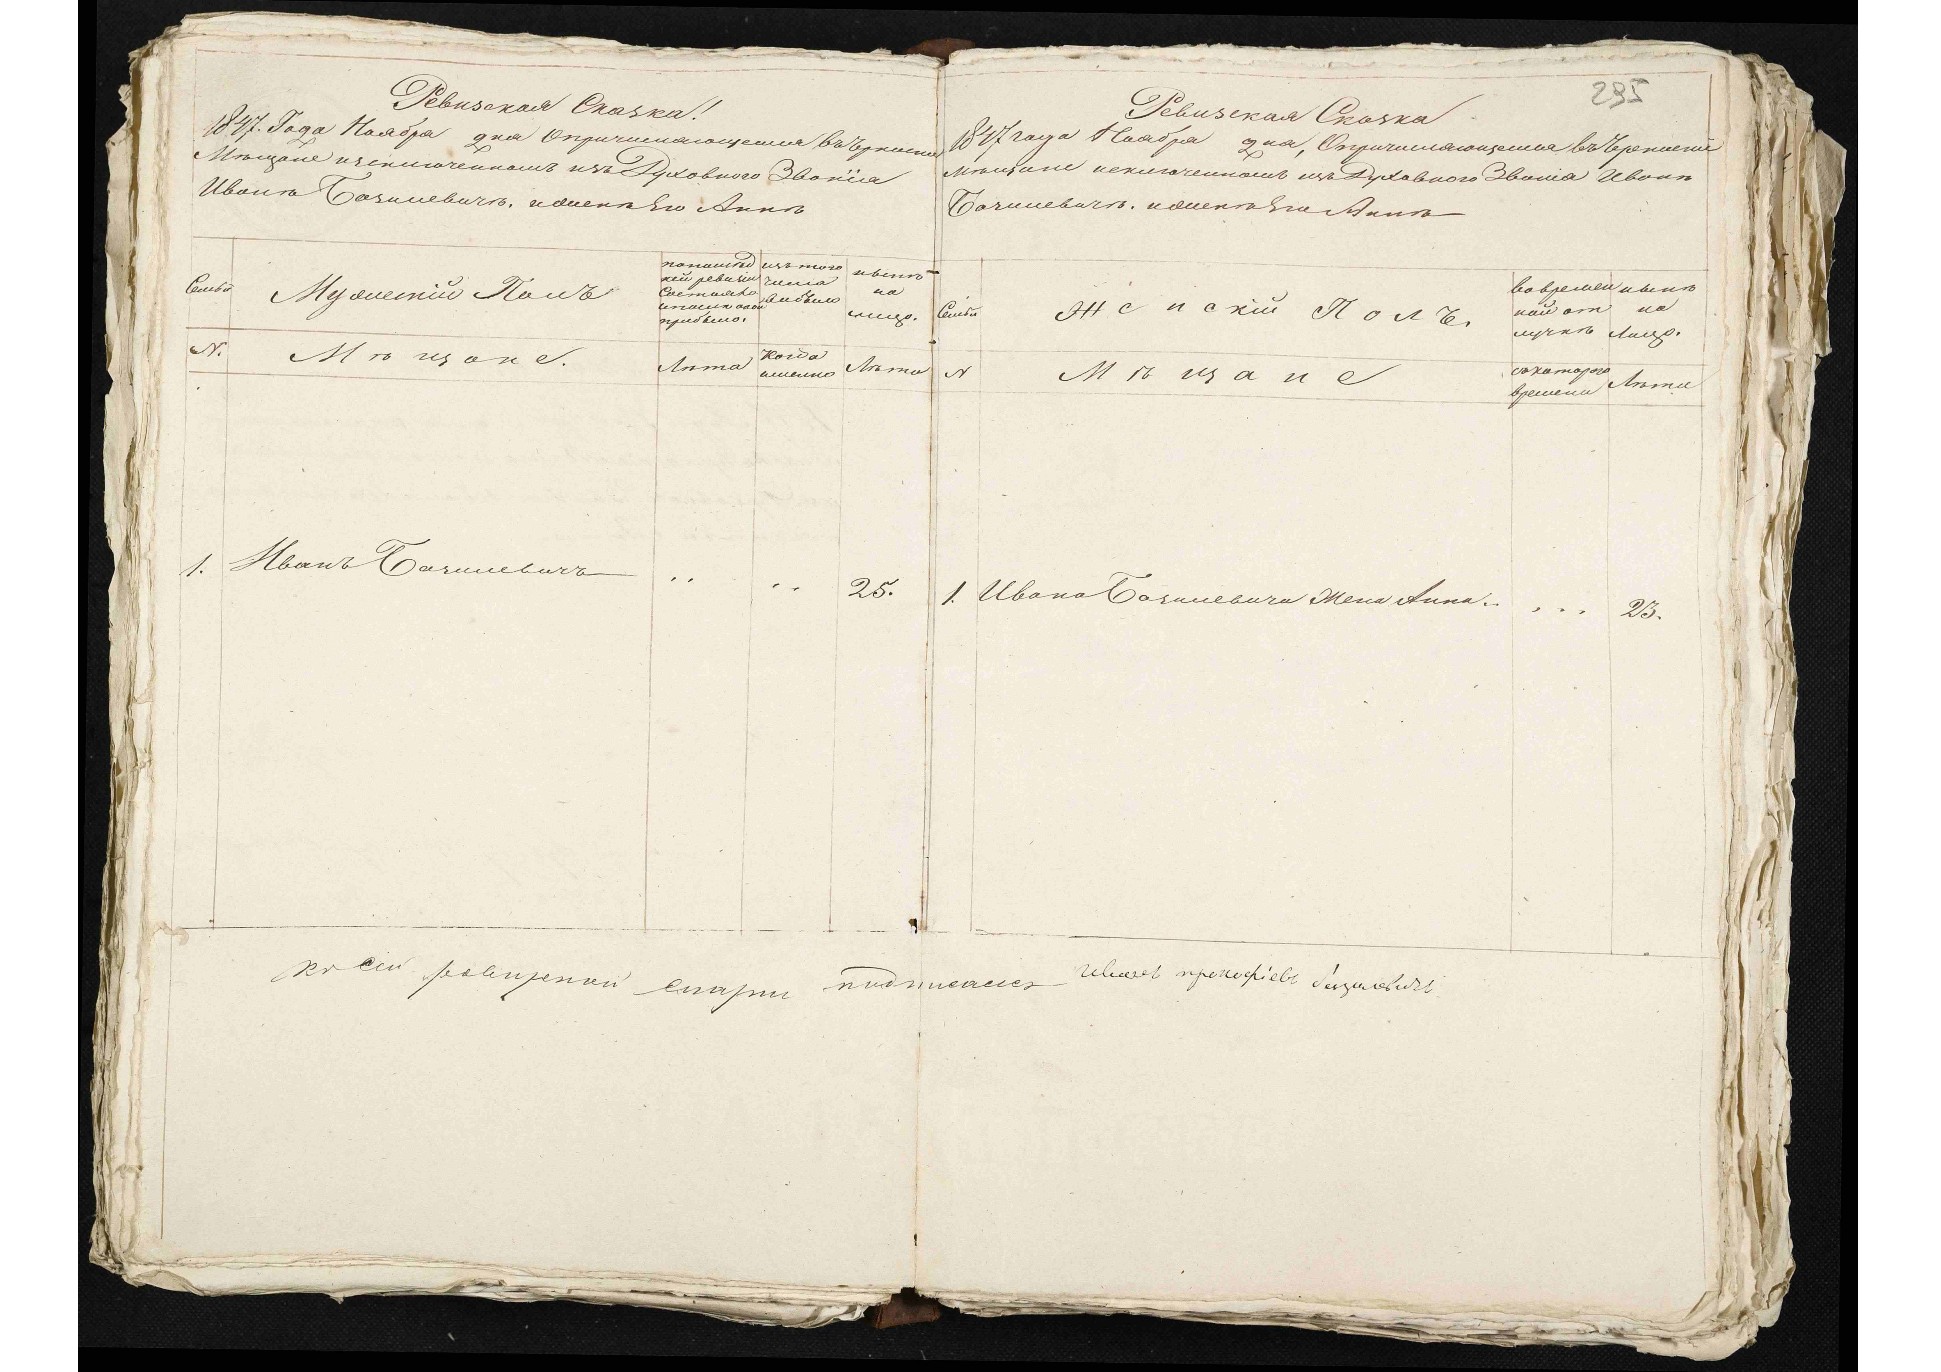 Ревизская Сказка!
1847. Года Ноября дня О причисляющемся въ
Мещане изключенномъ изъ Духовного Званія
Иванѣ Базилевичѣ. и женѣ Его Аннѣ
Семьи
Мужескій Полъ
по последней ревизіи состояло и после оной прибыло.
изъ того числа выбыло
нынѣ на лицо.
N.
Мѣщане.
Лѣта
Когда именно
Лѣта
1. Иванъ Базилевичъ " " 25.
295
Ревизская Сказка
1847 года Ноября дня, О причисляющемся въ
Мещане исключенномъ изъ Духовного Званія Иванѣ
Базилевичѣ. и женѣ Его Аннѣ
Семьи
Женскій Полъ.
во временной отлучкѣ
нынѣ на Лицо.
N
Мѣщане
съ котораго времени
Лѣта
1. Ивана Базилевича Жена Анна. 23.
къ сей подписался Иванъ прокофіевъ базилевичъ